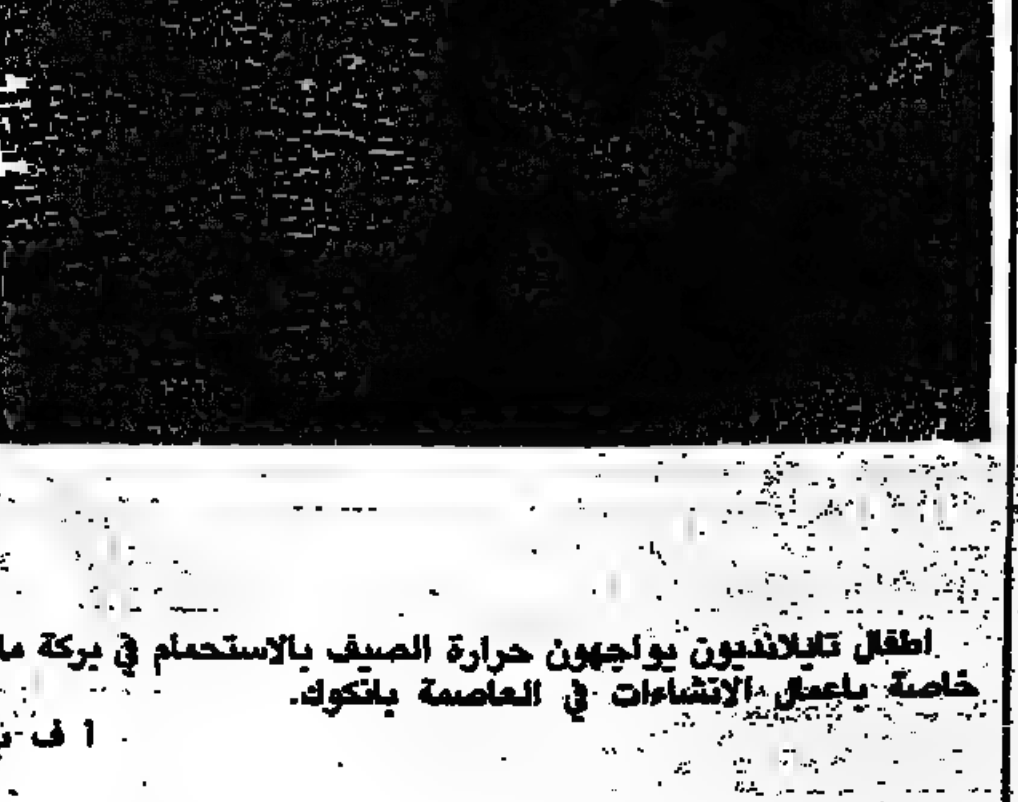 اطفال تايلانديون يواجهون حرارة الصيف بالاستحمام في بركة ما
خاصة باعمال الانشاءات في العاصمة بانكوك.
أ ف ب